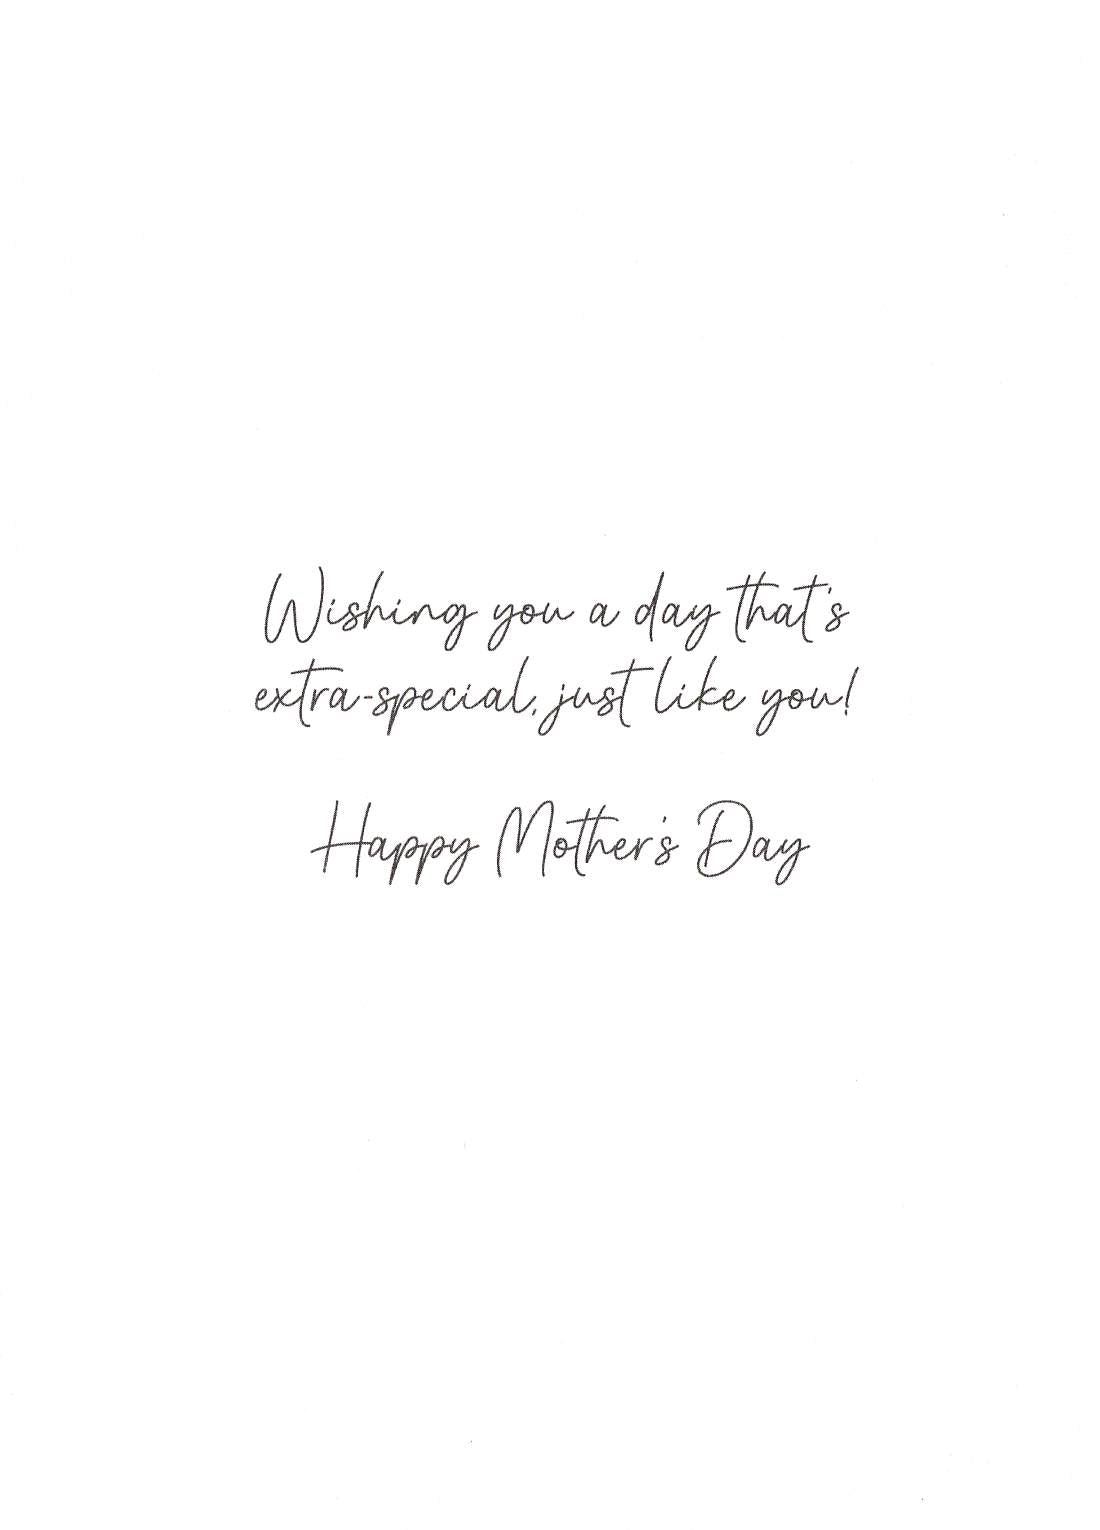 Wishing you a day that's
extra-special, just like you!
Happy Mother's Day